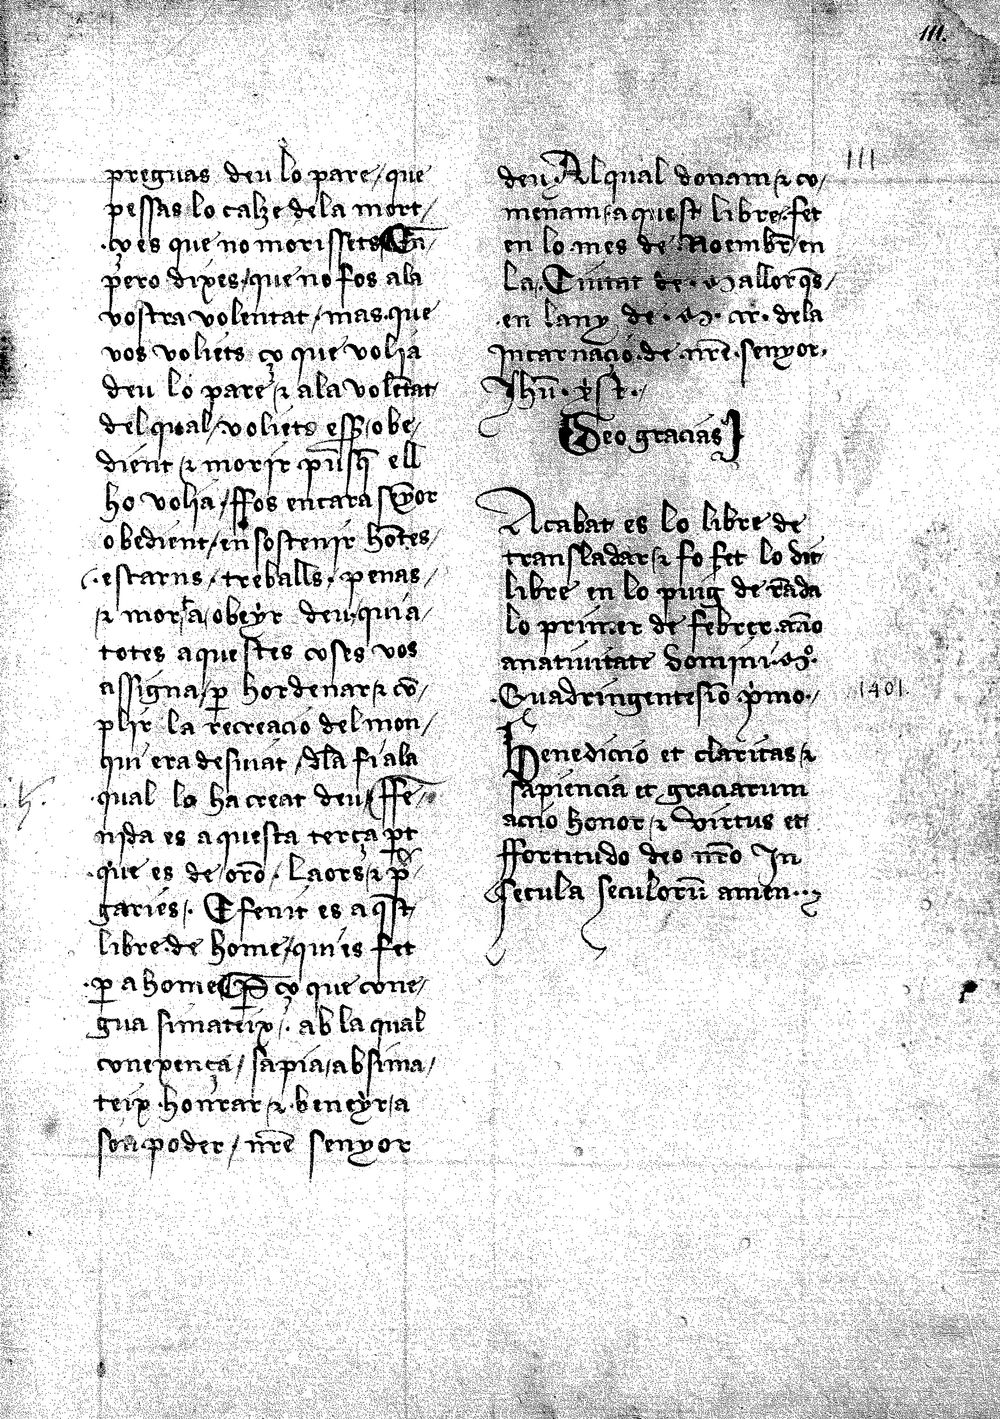 111.
preguas deu lo pare / que
pessas lo calze de la mort /
ço es que no morissets En
pero dixes / que no fos a la
vostra volentat / mas que
vos voliets ço que volia
deu lo pare / ⁊ a la volētat
del qual / voliets esser obe /
dient ⁊ morir pusq̄ ell
ho volia / ffos encara sēyor
obedient / en sostenir hōtes /
escarns / treballs / penas /
⁊ mort a obeyr deu / qui a /
totes aquestes coses vos
assigna / ꝑ hordenar ⁊ cō /
plir la recreacio del mon /
qui era desuiat / dla fi a la
qual lo ha creat deu / ffe /
nida es aquesta terça pt
que es de oro / Laors ⁊ p̄
garies / E fenit es aq̄st
libre de home / qui es fet
ꝑ a home Per ço que cone /
gua si mateix / ab la qual
conexença / sapia / ab si ma /
teix honrar ⁊ beneyr / a
son poder / nr̄e senyor
deu Al qual donam ⁊ co /
menam / aquest libre / fet
en lo mes de Noembr̄ / en
la Ciutat de Mallorq̄s /
en lany de M. ccc. de la
Incarnacio de nr̄e senyor
Jhū xst
Deo gracias
111
Acabat es lo libre de
transladar / ⁊ fo fet lo dit
libre en lo puig de rāda
lo primer de febrer ano
a natiuitate domini Mo
Quadringentesīo p̄mo
1401.
Benediccio et claritas ⁊
sapiencia et graciarum
accio honor ⁊ virtus et
ffortitudo deo nr̄o In
secula seculorū amen